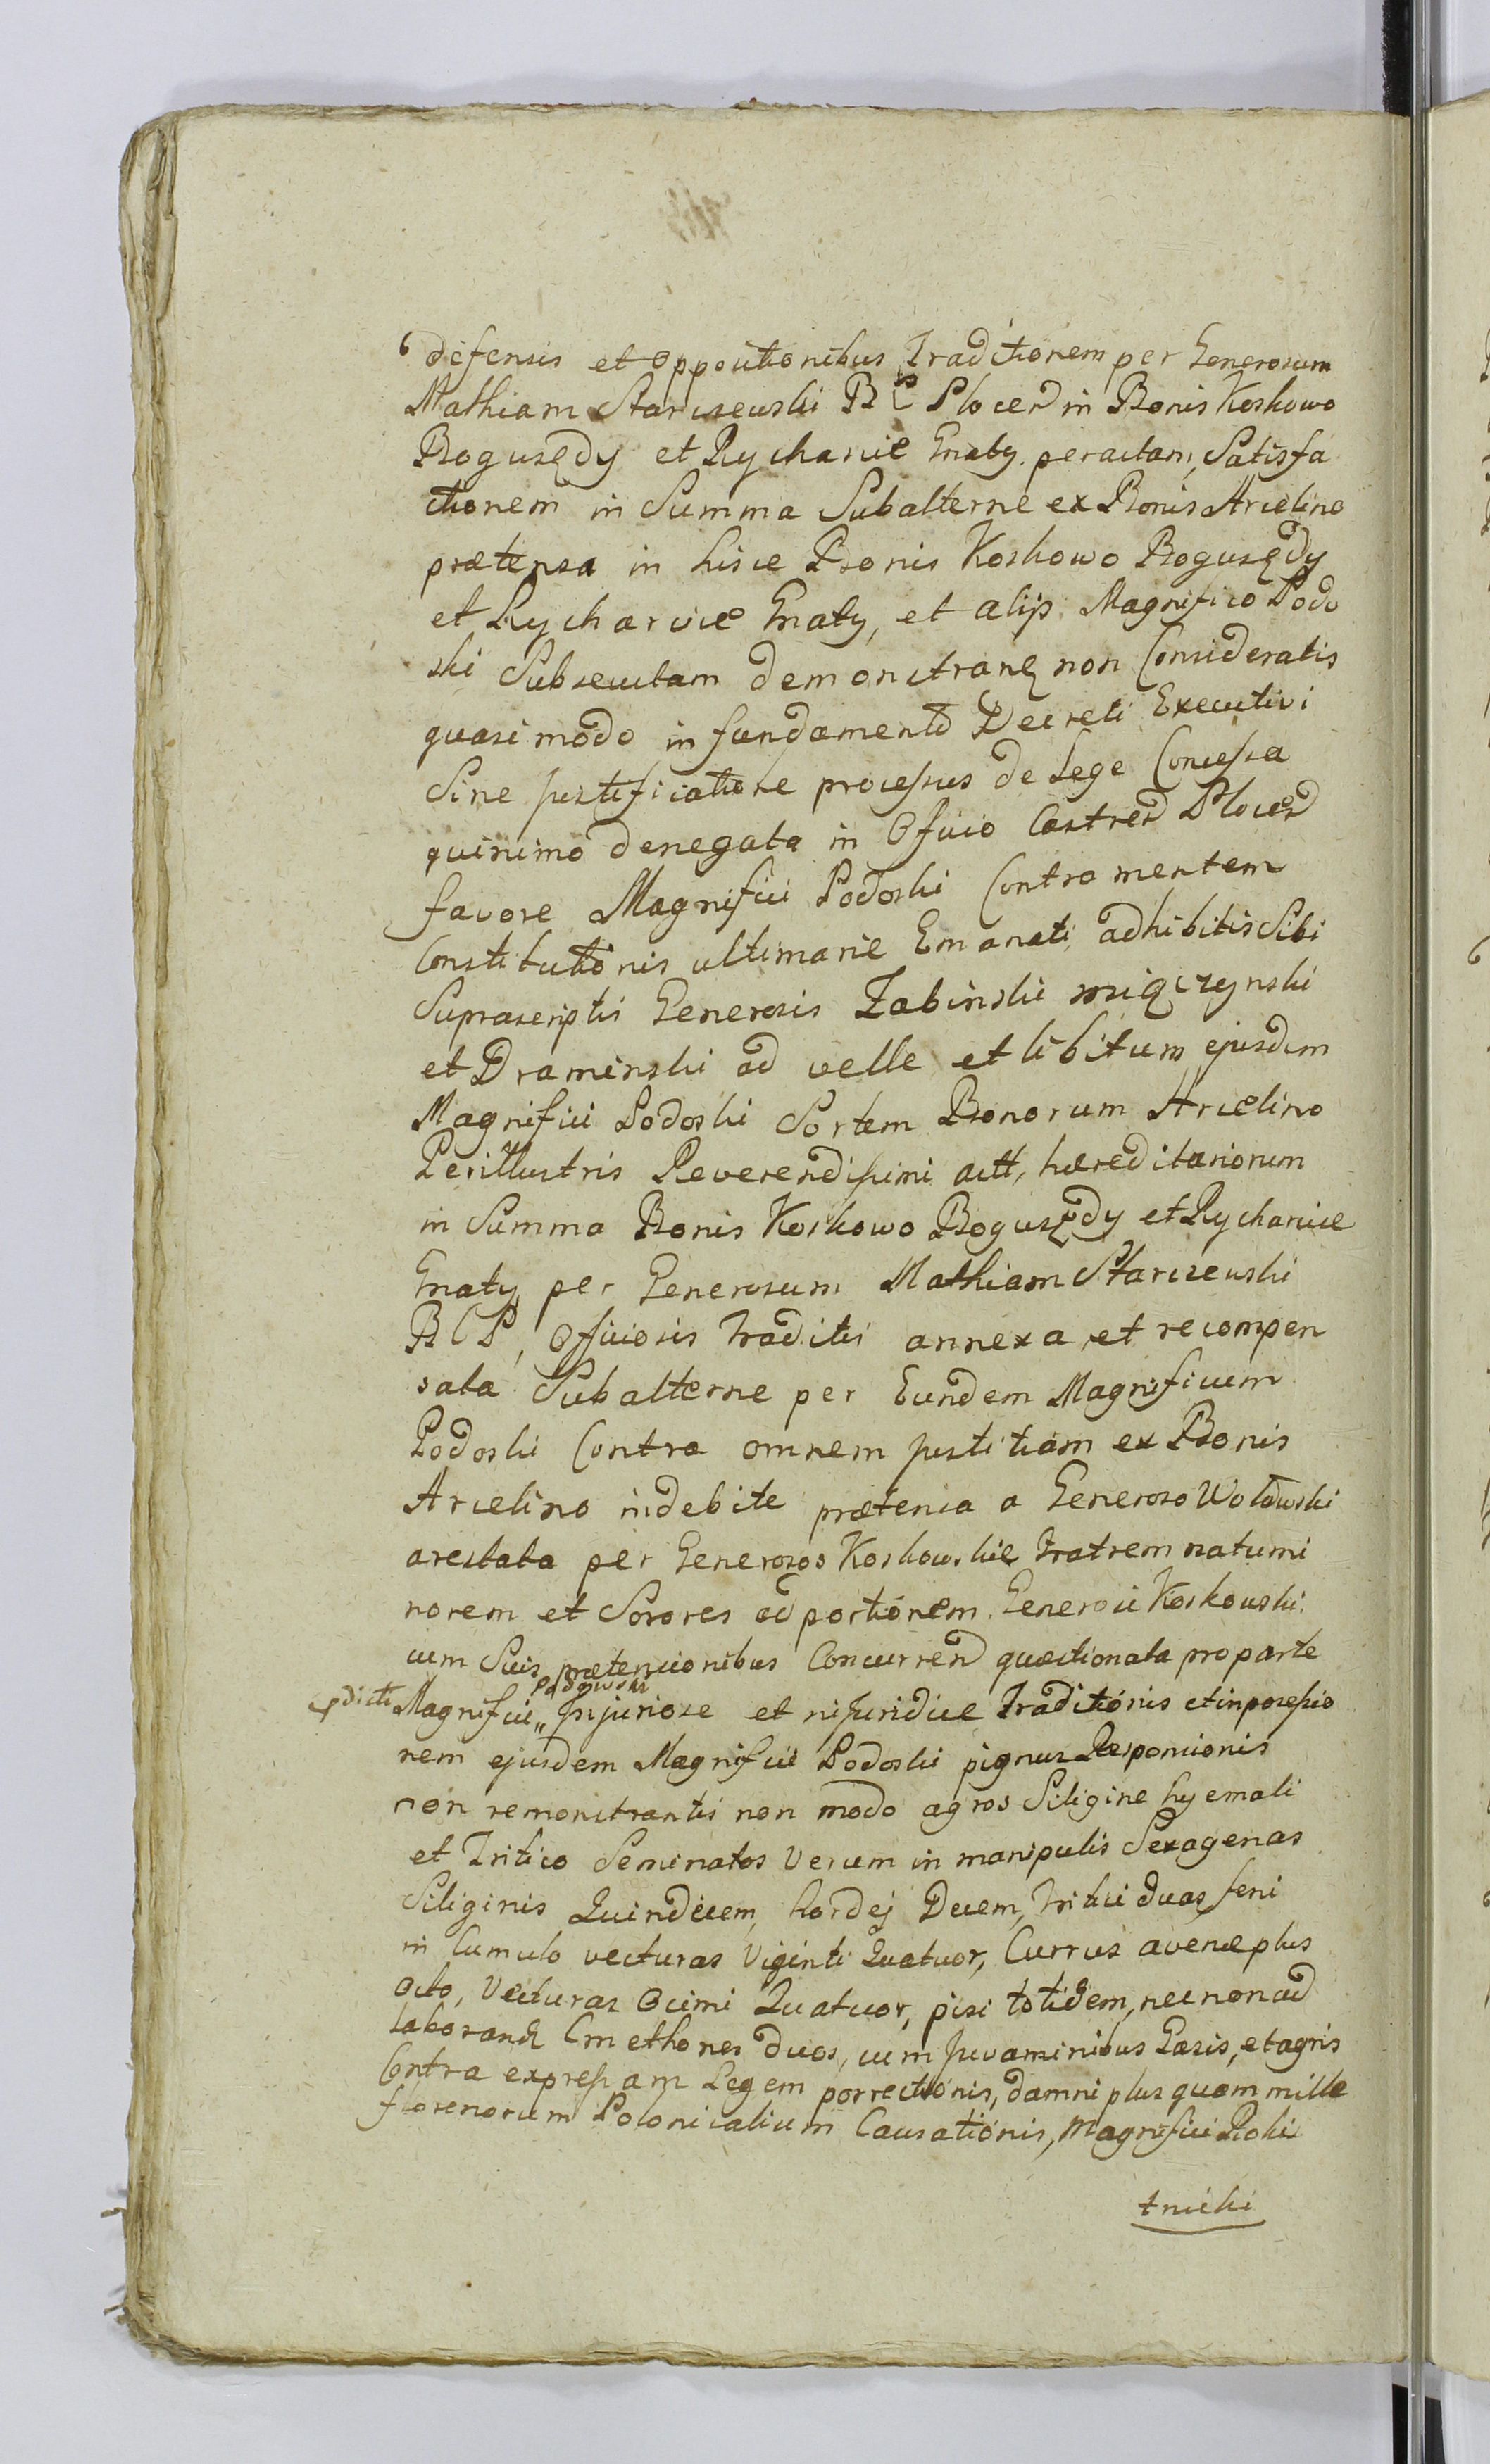 defensis et oppositionibus Traditionem per Generosum
Mathiam Starczewski B C Plocen in Bonis Koskowo
Boguszędy et Rycharcie Gnaty peractam, Satisfa
ctionem in Summa Subalterne ex Bonis Arcelino
prætensa in hisce Bonis Koskowo Boguszędy
et Rycharcice Gnaty, et alijs Magnifico Podo
ski Subsecutam demonstrand non Consideratis
quasi modo in fundamento Decreti Executivi
Sine justificatione processus de Lege Concessa
quinimo denegata in Officio Castren Plocen
favore Magnifici Podoski Contra mentem
Constitutionis ultimarie Emanati, adhibitis Sibi
Suprascriptis Generosis Zabinski miączynski
et Draminski ad velle et libitum ejusdem
Magnifici Podoski Sortem Bonorum Arcelino
Perillustris Reverendissimi actt, hæreditariorum
in Summa Bonis Koskowo Boguszędy et Rycharcice
Gnaty per Generosum Mathiam Starczewski
B C P, Officiosis traditis annexa et recompen
sata Subalterne per Eundem Magnificum
Podoski Contra omnem justitiam ex Bonis
Arcelino indebite prætensa a Generoso Wołowski
arestata per Generosos Koskowskie Fratrem natumi
norem et Sorores ad portionem Generosi Koskowski
cum Suis prætensionibus Concurren quæstionata pro parte
dicti Magnifici Podowski Injuriose et nijuridice traditionis et in possessio
nem ejusdem Magnifici Podoski pignus Responsionis
non remonstrantis non modo agros Siligine hyemali
et Tritico Seminatos verum in manipulis Sexagenas
Siliginis Quindecem, hordej Decem, tritici duas, feni
in Cumulo vecturas Viginti Quatuor, Currus avenæ plus
octo, Vecturas Ocimi Quatuor, pisi totidem, nec non ad
laborand Cmethones duos, cum juvaminibus Casis, et agris
Contra expressam Legem porrectionis, damni plus quam mille
florenorum Polonicalium Causationis, Magnifici Roki
tnicki